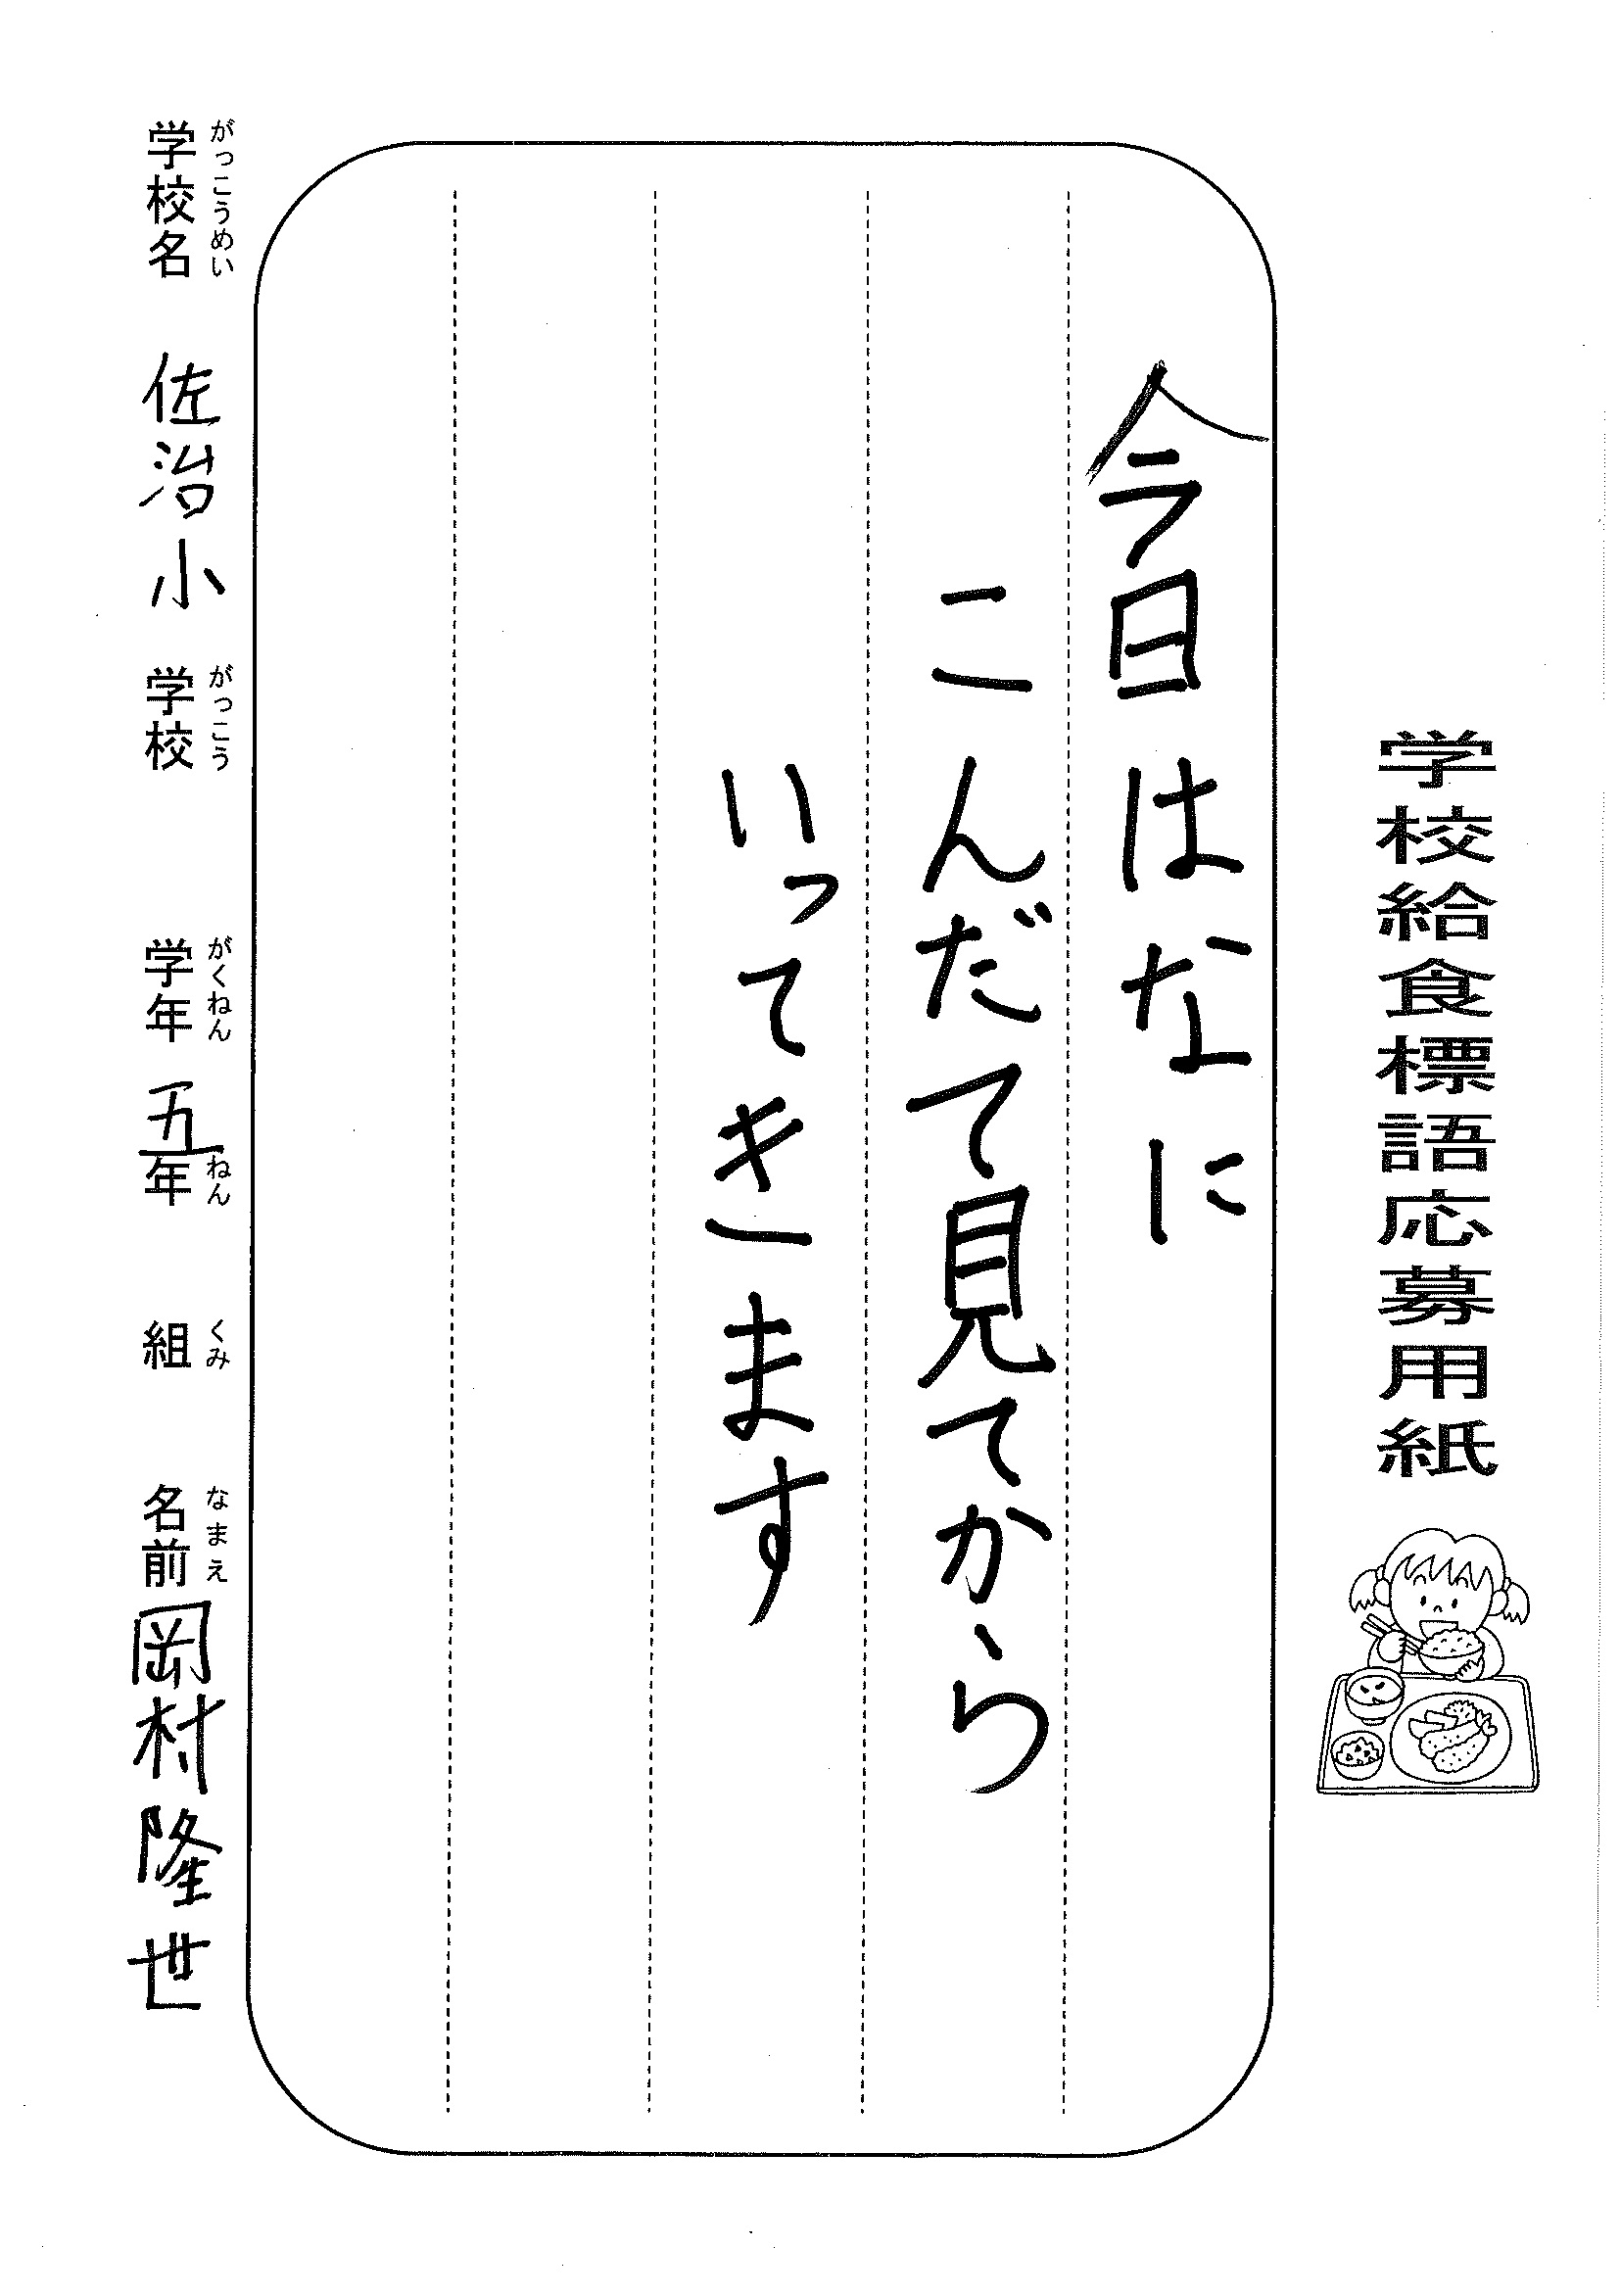 学校給食標語応募用紙
今日はなに
こんだて見てから
いってきます
がっこうめい がっこう がくねん ねん くみ なまえ
学校名 佐治小 学校 学年 五年 組 名前 岡村隆世